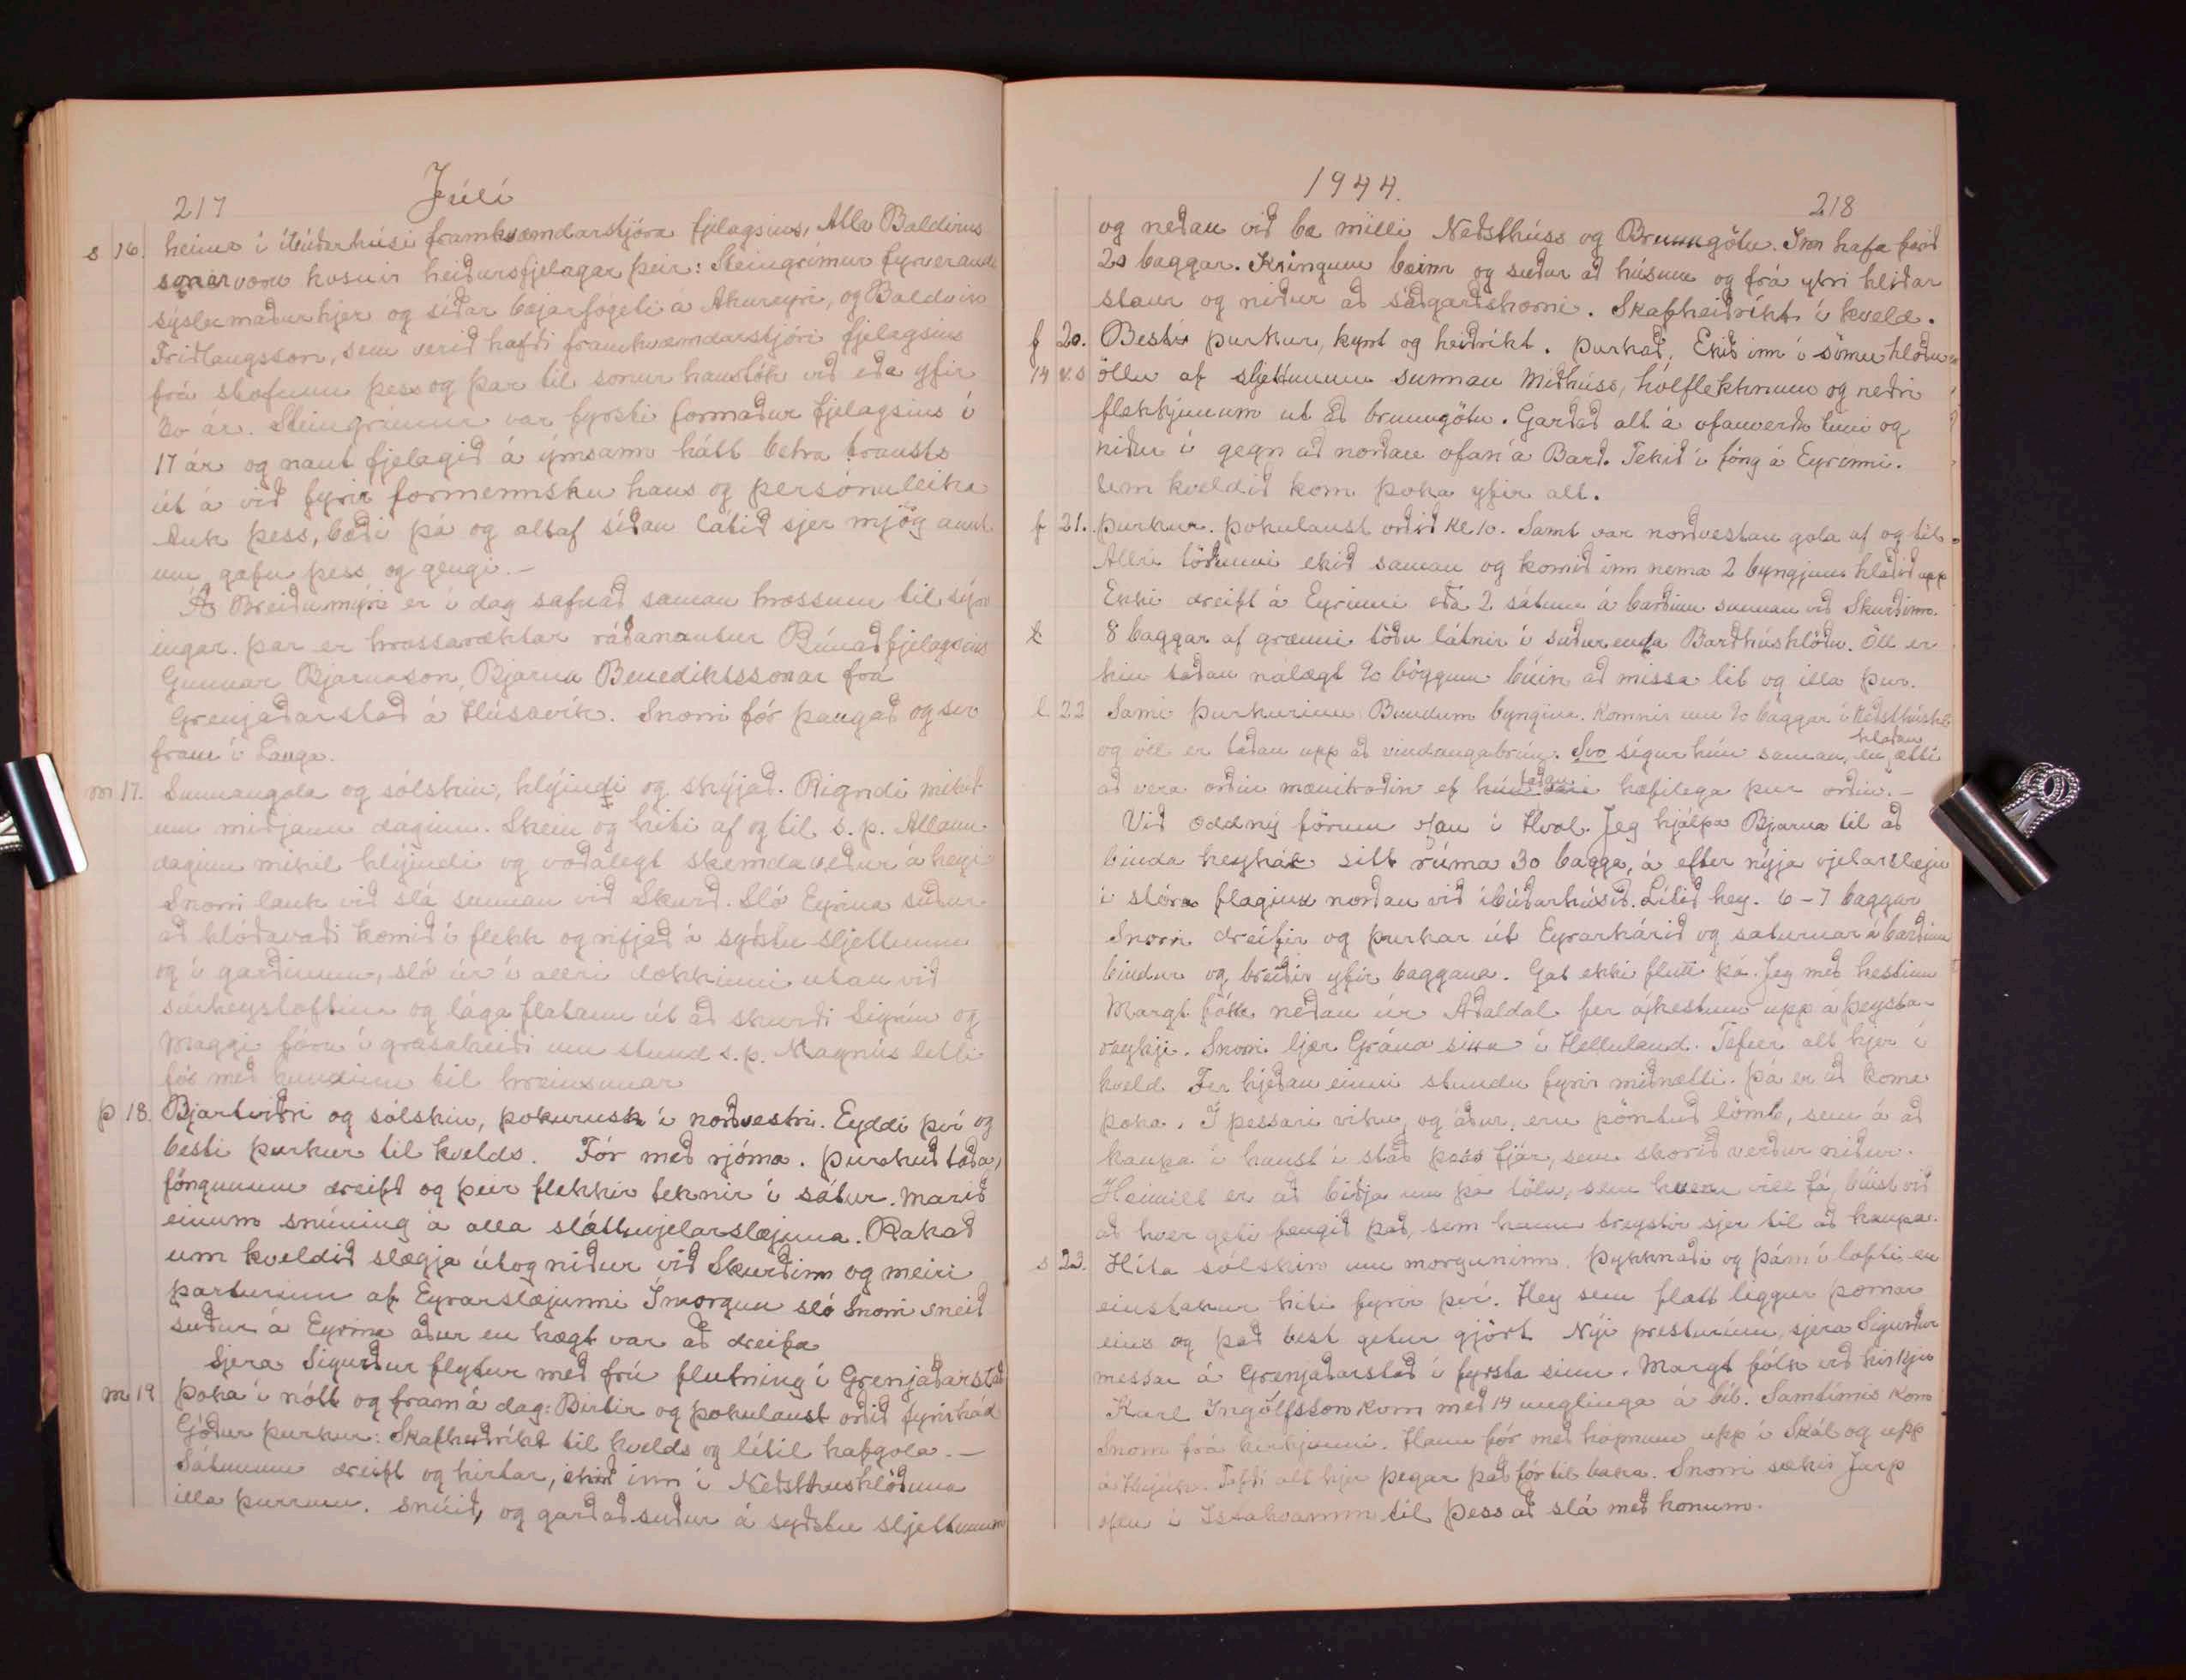 217 Júlí
s 16. heima í íbúðarhúsi framkvæmdarstjóra fjelagsins, Alla Baldvins
sonar voru kosnir heiðursfjelagar þeir: Steingrímur fyrverandi
sýslumaður hjer og síðar bæjarfógeti á Akureyri, og Baldvin
Friðlaugsson, sem verið hafði framkvæmdarstjóri fjelagsins
frá stofnun þess og þar til sonur hans tók við eða yfir
30 ár. Steingrímur var fyrsti formaður fjelagsins í
17 ár og naut fjelagið á ýmsann hátt betra trausts
út á við fyrir formennsku hans og persónuleika
Auk þess, bæði þá og altaf síðan látið sjer mjög annt
um gæfu þess og gengi. —
Á Breiðumýri er í dag safnað saman hrossum til sýn
ingar. þar er hrossaræktar ráðanautur Búnaðfjelagsins
Gunnar Bjarnason, Bjarna Benediktssonar frá
Grenjaðarstað á Húsavík. Snorri fór þangað og svo
fram í Lauga.
m 17. Sunnangola og sólskin, hlýindi og skýjað. Rigndi mikið
um miðjann daginn. Skein og hiti af og til s. p. Allann
daginn mikil hlýindi og voðalegt skemdaveður á heyi
Snorri lauk við slá sunnan við Skurð. Sló Eyrina suður
að hlóðavaði komið í flekk og rifjað á syðstu sljettunum
og í garðinum, sló úr í allri dokkinni utan við
súrheystoftina og lága flatann út að skurði Sigrún og
Maggi fóru í grasaheiði um stund s. p. Magnús litli
fór með hundinn til hreinsunar
þ 18. Bjartviðri og sólskin, þokurusk í norðvestri. Eyddi því og
besti þurkur til kvelds. Fór með rjóma. þurkuð taða,
föngunum dreift og þeir flekkir teknir í sátur. Marið
einum snúning á alla sláttuvjelarslægjuna. Rakað
um kveldið slægja út og niður við Skurðinn og meiri
parturinn af Eyrarslægjunni Í morgun sló Snorri sneið
suður á Eyrina áður en hægt var að dreifa
Sjera Sigurður flytur með frú flutning í Grenjaðarstað
m 19 þoka í nótt og fram á dag: Birtir og þokulaust orðið fyrir hád
Góður þurkur: Skafheiðríkt til kvelds og lítil hafgola. —
Sátunum dreift og hirtar, ekið inn í Neðsthushlöðuna
illa þurrum. snúið, og garðað suður á syðstu sljettunum
1944. 218
og neðan við bæ milli Neðsthúss og Brunngötu. Inn hafa farið
20 baggar. Kringum bæinn og suður að húsum og frá ytri hliðar
staur og niður að sáðgarðshorni. Skafheiðríkt í kveld.
f 20. Besti þurkur, kyrt og heiðríkt. þurkað. Ekið inn í sömu hlöðu
14 v.s öllu af sljettunum sunnan Miðhúss, hólflekknum og neðri
flekkjunum út að brunngötu. Garðað alt á ofanverðu túni og
niður í gegn að norðan ofan á Barð. Tekið í föng á Eyrinni.
Um kveldið kom þoka yfir alt.
f 21. þurkur. þokulaust orðið kl 10. Samt var norðvestan gola af og til
Allri töðunni ekið saman og komið inn nema 2 byngjum hlaðið upp
Ekki dreift á Eyrinni eða 2 sátum á barðinu sunnan við Skurðinn.
8 baggar af grænni töðu látnir í suðurenda Barðhúshlöðu. Öll er
hin taðan nálægt 90 böggum búin að missa lit og illa þur.
l 22 Sami þurkurinn Bundum byngina. Komnir um 90 baggar í Neðsthúshl.
og öll er taðan upp að vindaugabrún. Svo sígur hún saman, en hlaðan ætti
að vera orðin mænitroðin ef taðan hæfilega þur orðin. —
Við Oddný förum ofan í Hvol. Jeg hjálpa Bjarna til að
binda heyhák sitt rúma 30 bagga, á eftir nýja vjelarslægju
í stóra flaginu norðan við íbúðarhúsið. Lítið hey. 6 - 7 baggar
Snorri dreifir og þurkar út Eyrarhárið og saturnar á barðinu
bindur og breiðir yfir baggana. Gat ekki flutt þá. Jeg með hestinn
Margt fólk neðan úr Aðaldal fer á hestum upp á þeysta-
reyki. Snorri ljær Grána sinn í Helluland. Tefur alt hjer í
kveld Fer hjeðan einni stundu fyrir miðnætti. þá er að koma
þoka. Í þessari viku, og áður, eru pöntuð lömb, sem á að
kaupa í haust í stað þess fjár, sem skorið verður niður.
Heimilt er að biðja um þá tölu, sem hver vill fá, búist við
að hver geti fengið það, sem hann treystir sjer til að kaupa.
s 23. Hita sólskin um morguninn. Þykknaði og þám í lofti en
einstakur hiti fyrir því. Hey sem flatt liggur þornar
eins og það best getur gjört Nýi presturinn, sjera Sigurður
messar á Grenjaðarstað í fyrsta sinn. Margt fólk við kirkju
Karl Ingólfsson kom með 14 unglinga á bíl. Samtímis kom
Snorri frá kirkjunni. Hann fór með hópnum upp í Skál og upp
á Hnjúk. Tafði alt hjer þegar það fór til baka. Snorri sækir Jarp
ofan í Ystahvamm til þess að slá með honum.